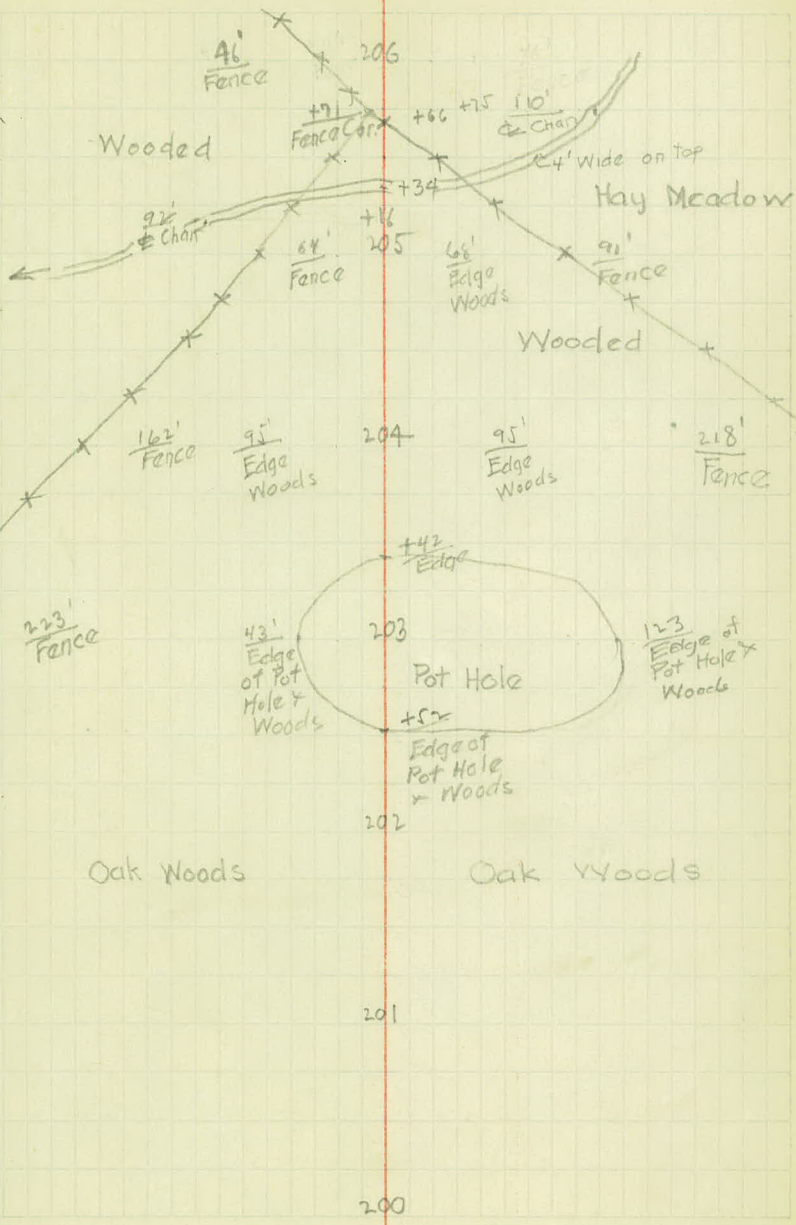 46'
Fence
206
+71'
Fence Cor.
+66 +75
110'
℄ Chan
Wooded
4' Wide on top
+34
Hay Meadow
92'
℄ Chan
+16
205
64'
Fence
68'
Edge
Woods
91'
Fence
Wooded
162'
Fence
95'
Edge
Woods
204
95'
Edge
Woods
218'
Fence
+42
Edge
223'
Fence
43'
Edge
of Pot
Hole &
Woods
203
Pot Hole
123
Edge of
Pot Hole &
Woods
+52
Edge of
Pot Hole
& Woods
202
Oak Woods
Oak Woods
201
200